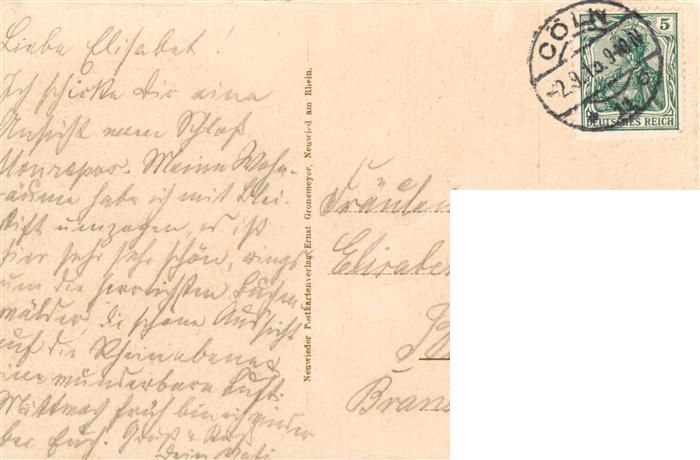 Liebe Elisabet!
Ich schicke Dir eine
Ansicht vom Schloß
Monrepos. Meine Wohn-
räume habe ich mit Blei-
stift umzogen, es ist
hier sehr sehr schön, rings
um die herrlichsten Buchen
wälder, die schöne Aussicht
auf die Rheinebene &
eine wunderbare Luft.
Mittwoch früh bin ich wieder
bei Euch. Gruß & Kuß
Dein Vati
Neuwieder Postkartenverlag Ernst Gronemeyer, Neuwied am Rhein.
CÖLN
5
DEUTSCHES REICH
Fräulein
Elisabe
Bran